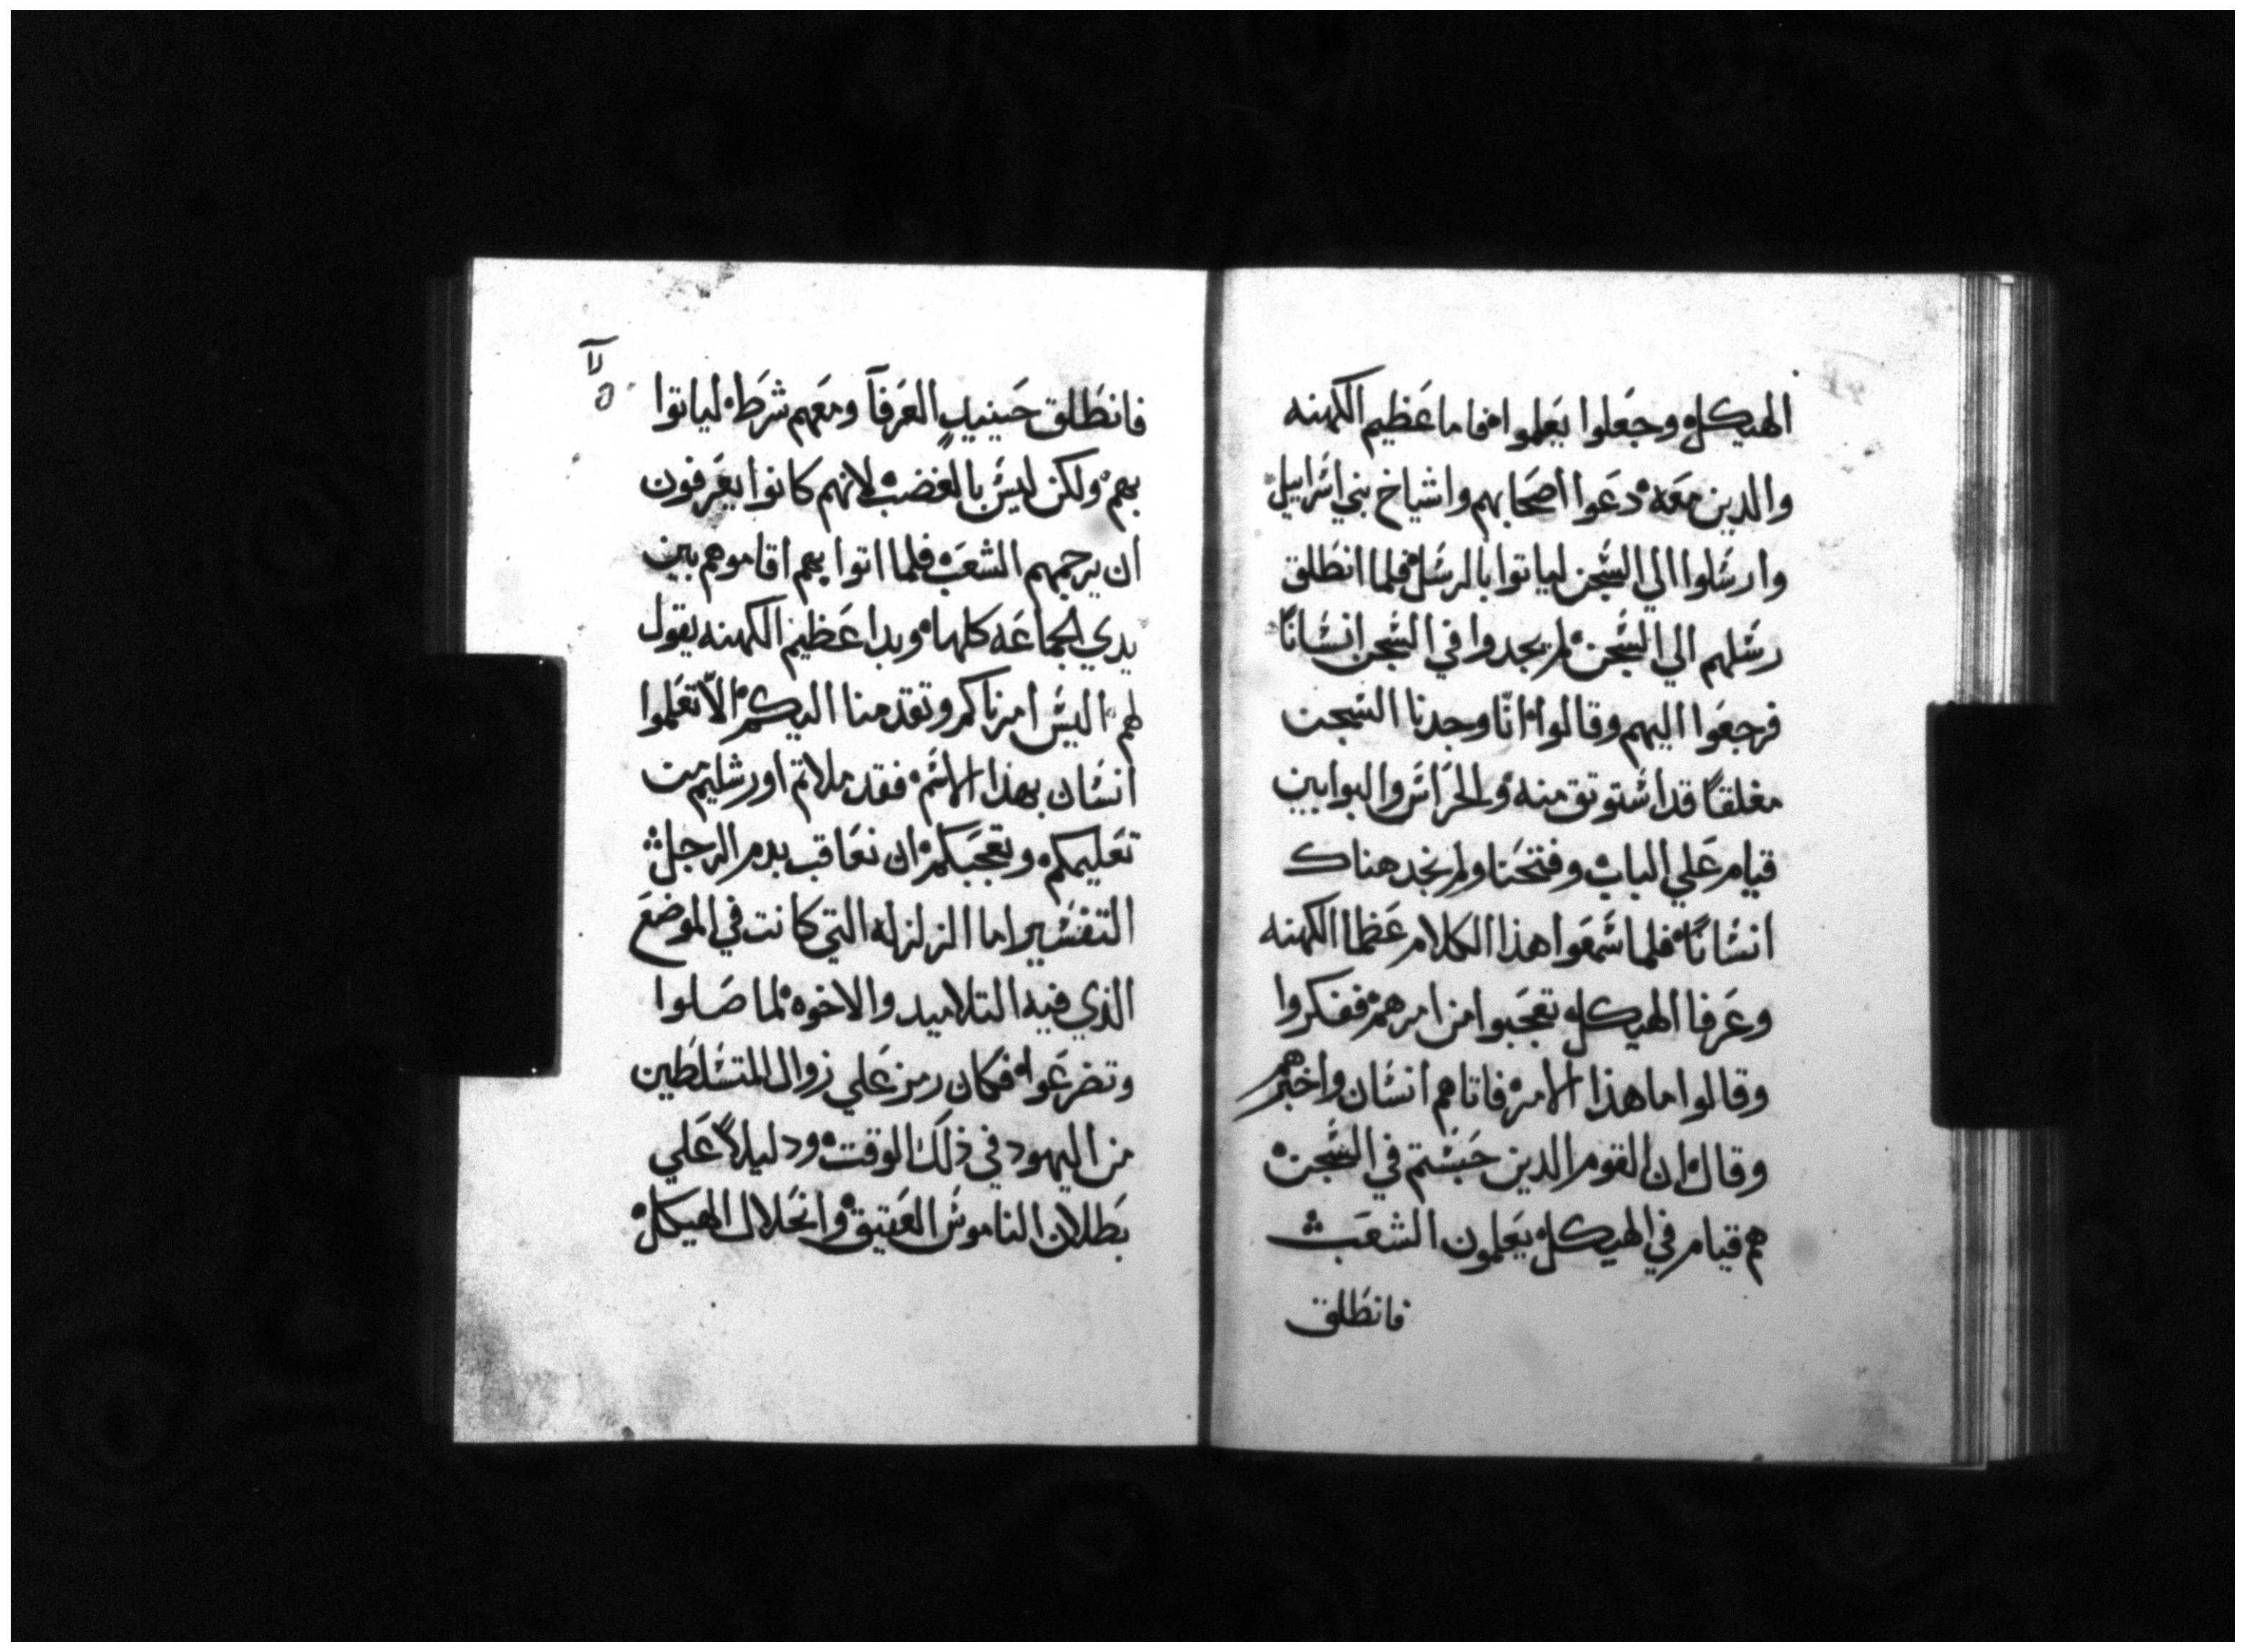 الهيكل وجعلوا يعلموا فاما عظيم الكهنه
والدين معه دعوا اصحابهم واشياخ بني اسراييل
وارسلوا الي السجن لياتوا بالرسل فلما انطلق
رسلهم الي السجن لم يجدوا في السجن انسانًا
فرجعوا اليهم وقالوا انّا وجدنا السجن
مغلقًا قد استوتق منه والحراس والبوابين
قيام علي الباب وفتحنا ولم نجد هناك
انسانًا فلما سمعوا هذا الكلام عظما الكهنه
وعرفا الهيكل تعجبوا من امرهم ففكروا
وقالوا ما هذا الامر فاتاهم انسان واخبرهم
وقال ان القوم الدين حبستم في السجن
هم قيام في الهيكل يعلمون الشعب
فانطلق
فانطلق حينيدٍ العرفآ ومعهم شرط لياتوا
بهم ولكن ليس بالغضب لانهم كانوا يعرفون
ان يرجمهم الشعب فلما اتوا بهم اقاموهم بين
يدي الجماعه كلها وبدا عظيم الكهنه يقول
لهم اليس امرناكم وتقدمنا اليكم الّا تعلموا
انسان بهذا الاسم فقد ملاتم اورشليم من
تعليمكم وتعجبكم ان نعاقب بدم الرجل
التفسير اما الزلزله التي كانت في الموضع
الذي فيه التلاميد والاخوه لما صلوا
وتضرعوا فكان رمز علي زوال المتسلطين
من اليهود في ذلك الوقت ودليلاً علي
بطلان الناموس العتيق وانحلال الهيكل